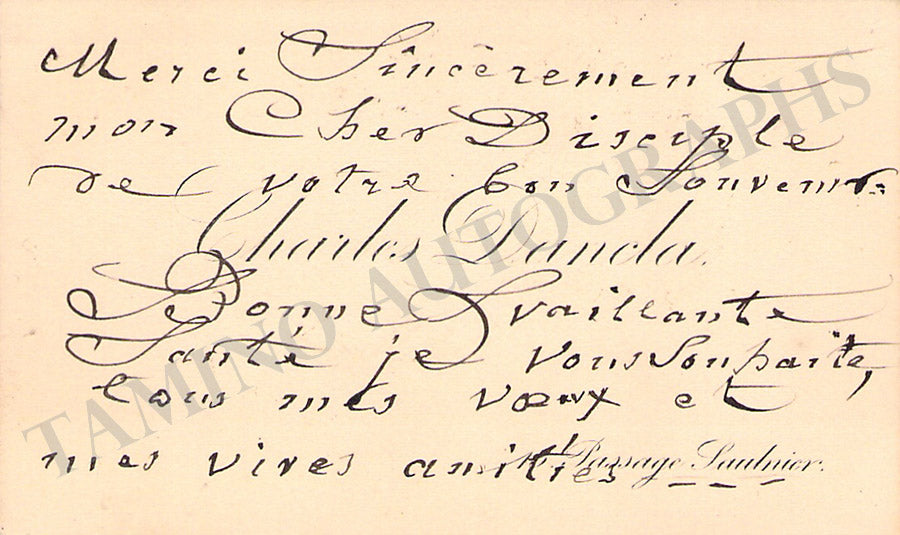 Merci Sincèrement
mon Cher Disciple
de votre bon Souvenir
Charles Dancla.
Bonne & vaillante
Santé je vous Souhaite,
tous mes vœux et
mes vives amitiés
Passage Saulnier.
TAMINO AUTOGRAPHS